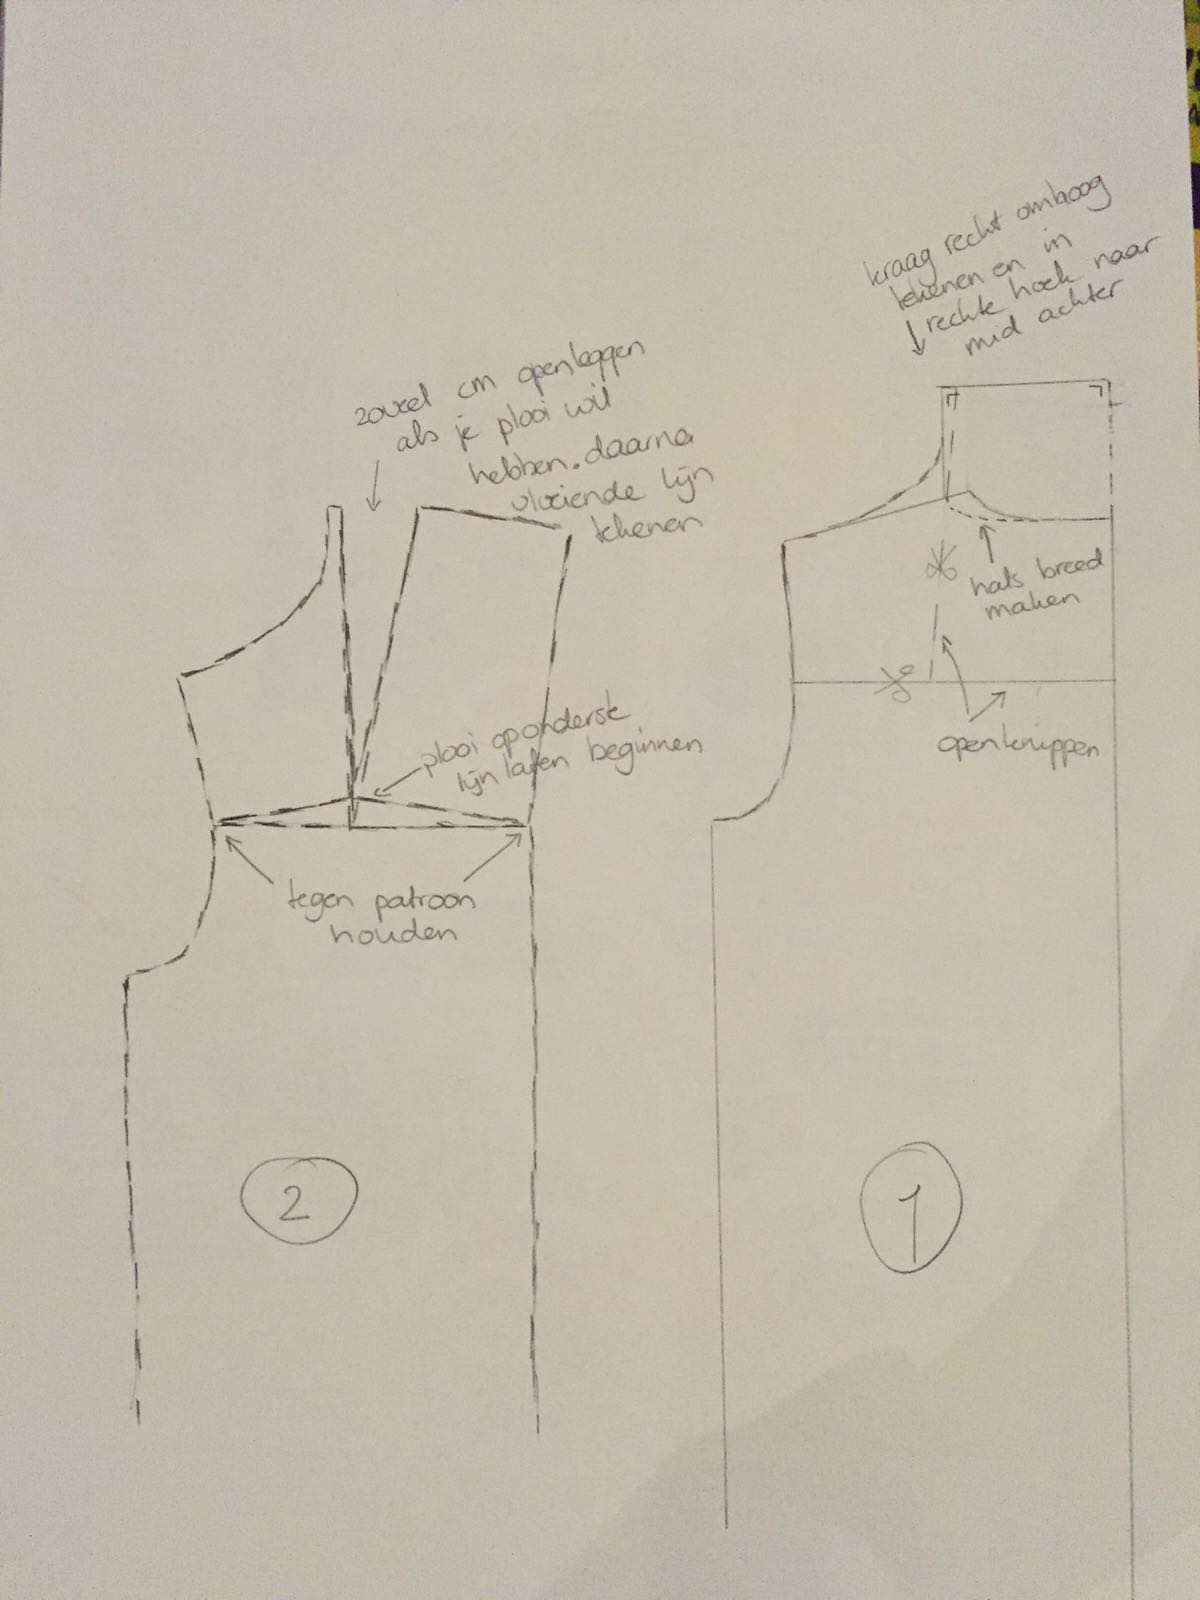 kraag recht omhoog
tekenen en in
rechte hoek naar
mid achter
hals breed
maken
openknippen
1
zoveel cm openleggen
als je plooi wil
hebben. daarna
vloeiende lijn
tekenen
plooi op onderste
lijn laten beginnen
tegen patroon
houden
2